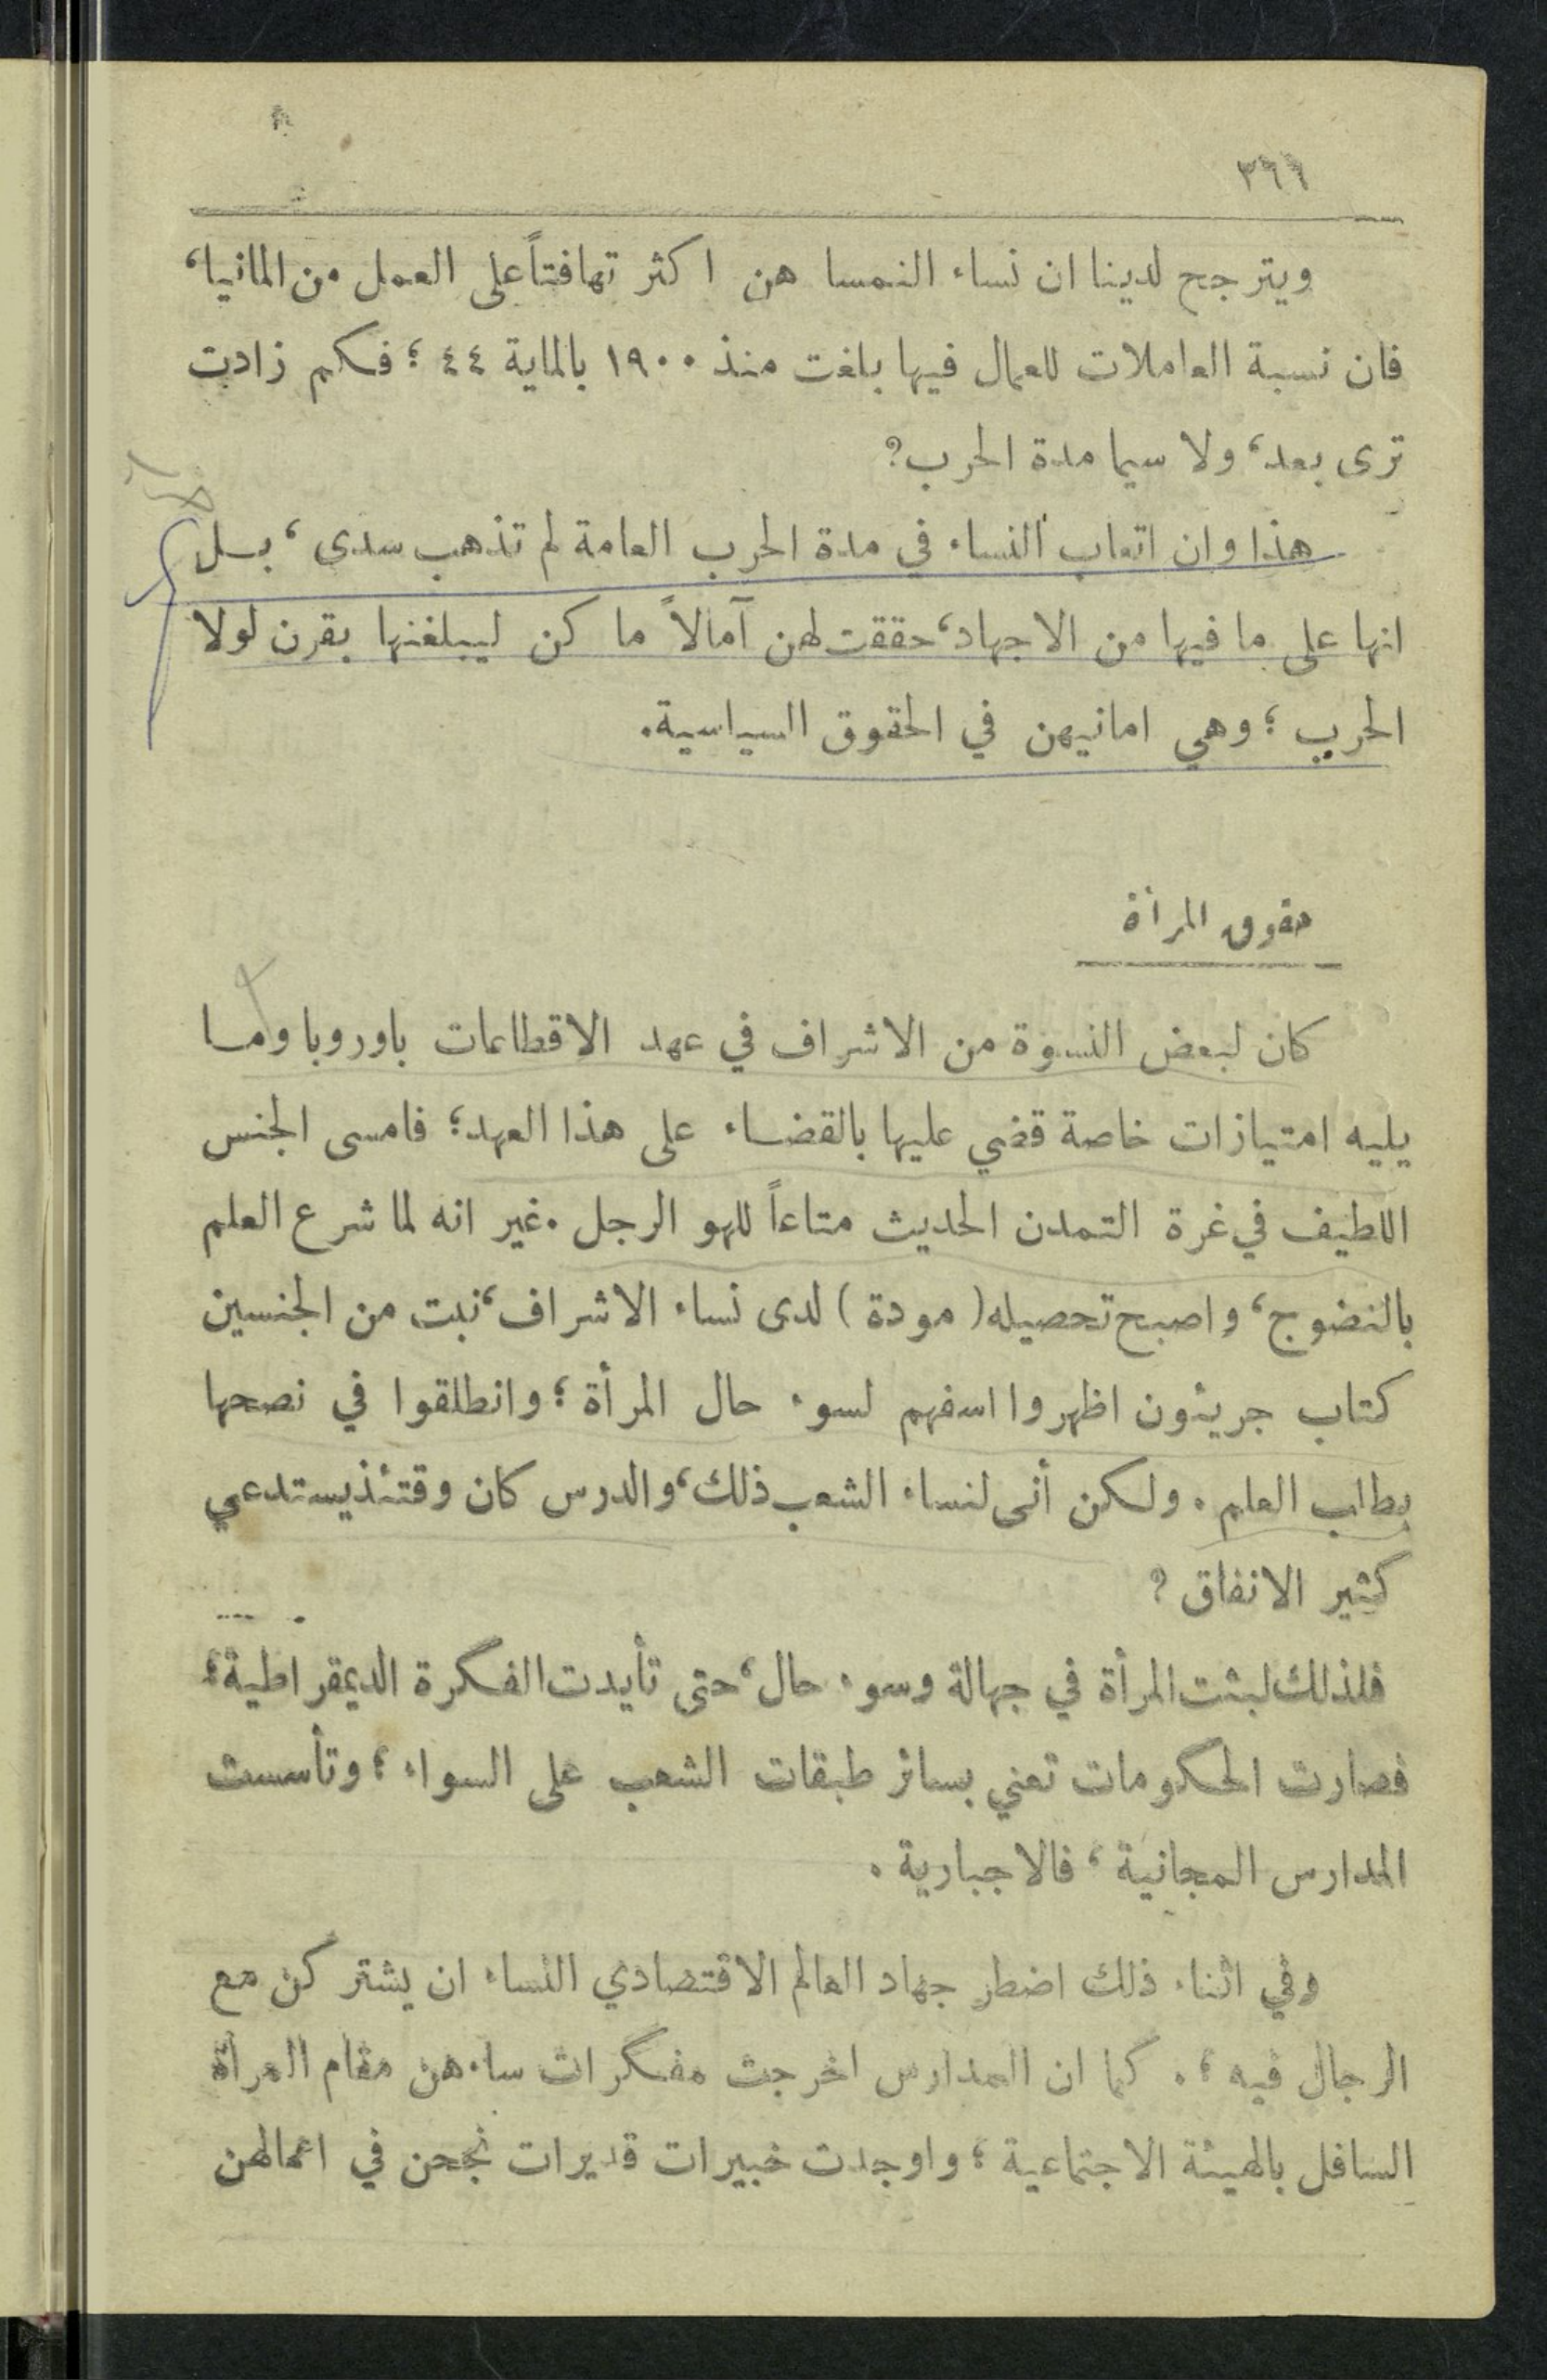 ٣٦٦
ويترجح لدينا ان نساء النمسا هن اكثر تهافتاً على العمل من المانيا،
فان نسبة العاملات للعمال فيها بلغت منذ ١٩٠٠ بالماية ٤٤؛ فكم زادت
ترى بعد، ولا سيما مدة الحرب؟
هذا وان اتعاب النساء في مدة الحرب العامة لم تذهب سدى، بل
انها على ما فيها من الاجهاد، حققت لهن آمالاً ما كن ليبلغنها بقرن لولا
الحرب؛ وهي امانيهن في الحقوق السياسية.
حقوق المرأة
كان لبعض النسوة من الاشراف في عهد الاقطاعات باوروبا وما
يليه امتيازات خاصة قضي عليها بالقضاء على هذا العهد؛ فامسى الجنس
اللطيف في غرة التمدن الحديث متاعاً للهو الرجل. غير انه لما شرع العلم
بالنضوج، واصبح تحصيله (مودة) لدى نساء الاشراف، نبت من الجنسين
كتاب جريئون اظهروا اسفهم لسوء حال المرأة؛ وانطلقوا في نصحها
بطلب العلم. ولكن أنى لنساء الشعب ذلك، والدرس كان وقتئذ يستدعي
كثير الانفاق؟
فلذلك لبثت المرأة في جهالة وسوء حال، حتى تأيدت الفكرة الديمقراطية؛
فصارت الحكومات تعني بسائر طبقات الشعب على السواء؛ وتأسست
المدارس المجانية، فالاجبارية.
وفي اثناء ذلك اضطر جهاد العالم الاقتصادي النساء ان يشتركن مع
الرجال فيه؛. كما ان المدارس اخرجت مفكرات ساءهن مقام المرأة
السافل بالهيئة الاجتماعية؛ واوجدت خبيرات قديرات نجحن في اعمالهن